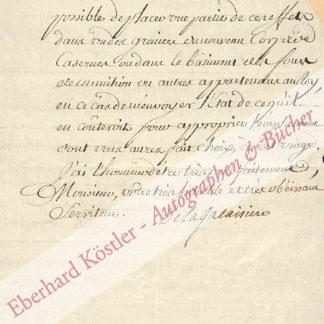 possible de placer une partie de ces effets
dans un des greniers du nouveau Corps de
Casernes ou dans le batiment des fours
de munition ou autres appartenans au Roy
en ce cas de m'envoyer l'Etat de ce qu'il
en couteroit pour approprier
dont vous aurés fait choix,
J'ai l'honneur d'etre très parfaitement,
Monsieur, votre très humble et très obeissant
Serviteur. De la Galaisiere
Eberhard Köstler - Autographen & Bücher